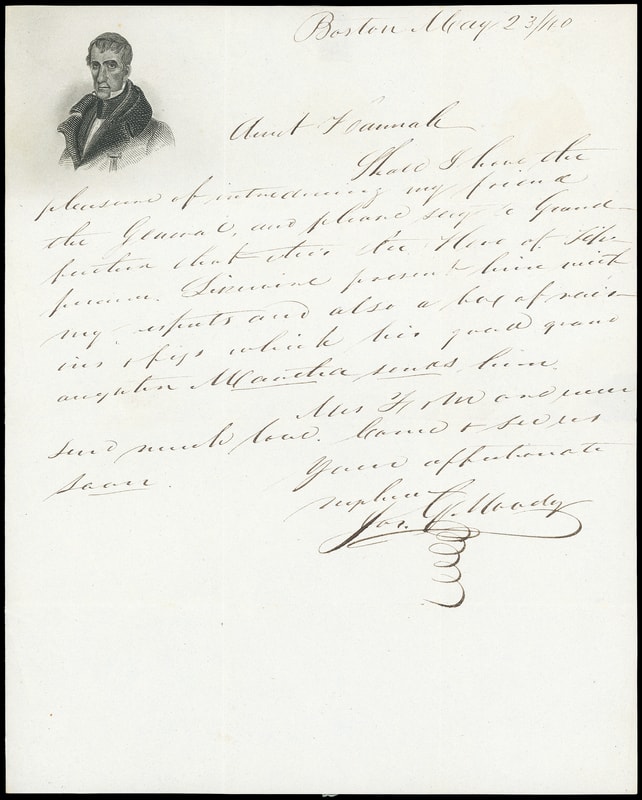 Boston May 23/40
Aunt Hannah
Shall I have the
pleasure of introducing my friend
the General, and please say to Grand
father that this is the Hero of Tippe
present him with
my respects and also a box of rais
ins & figs which his good grand
aughter Martha sends him.
Mrs and
send much love. Come & see us
soon.
Your affectionate
nephew
Jos. G. Moody